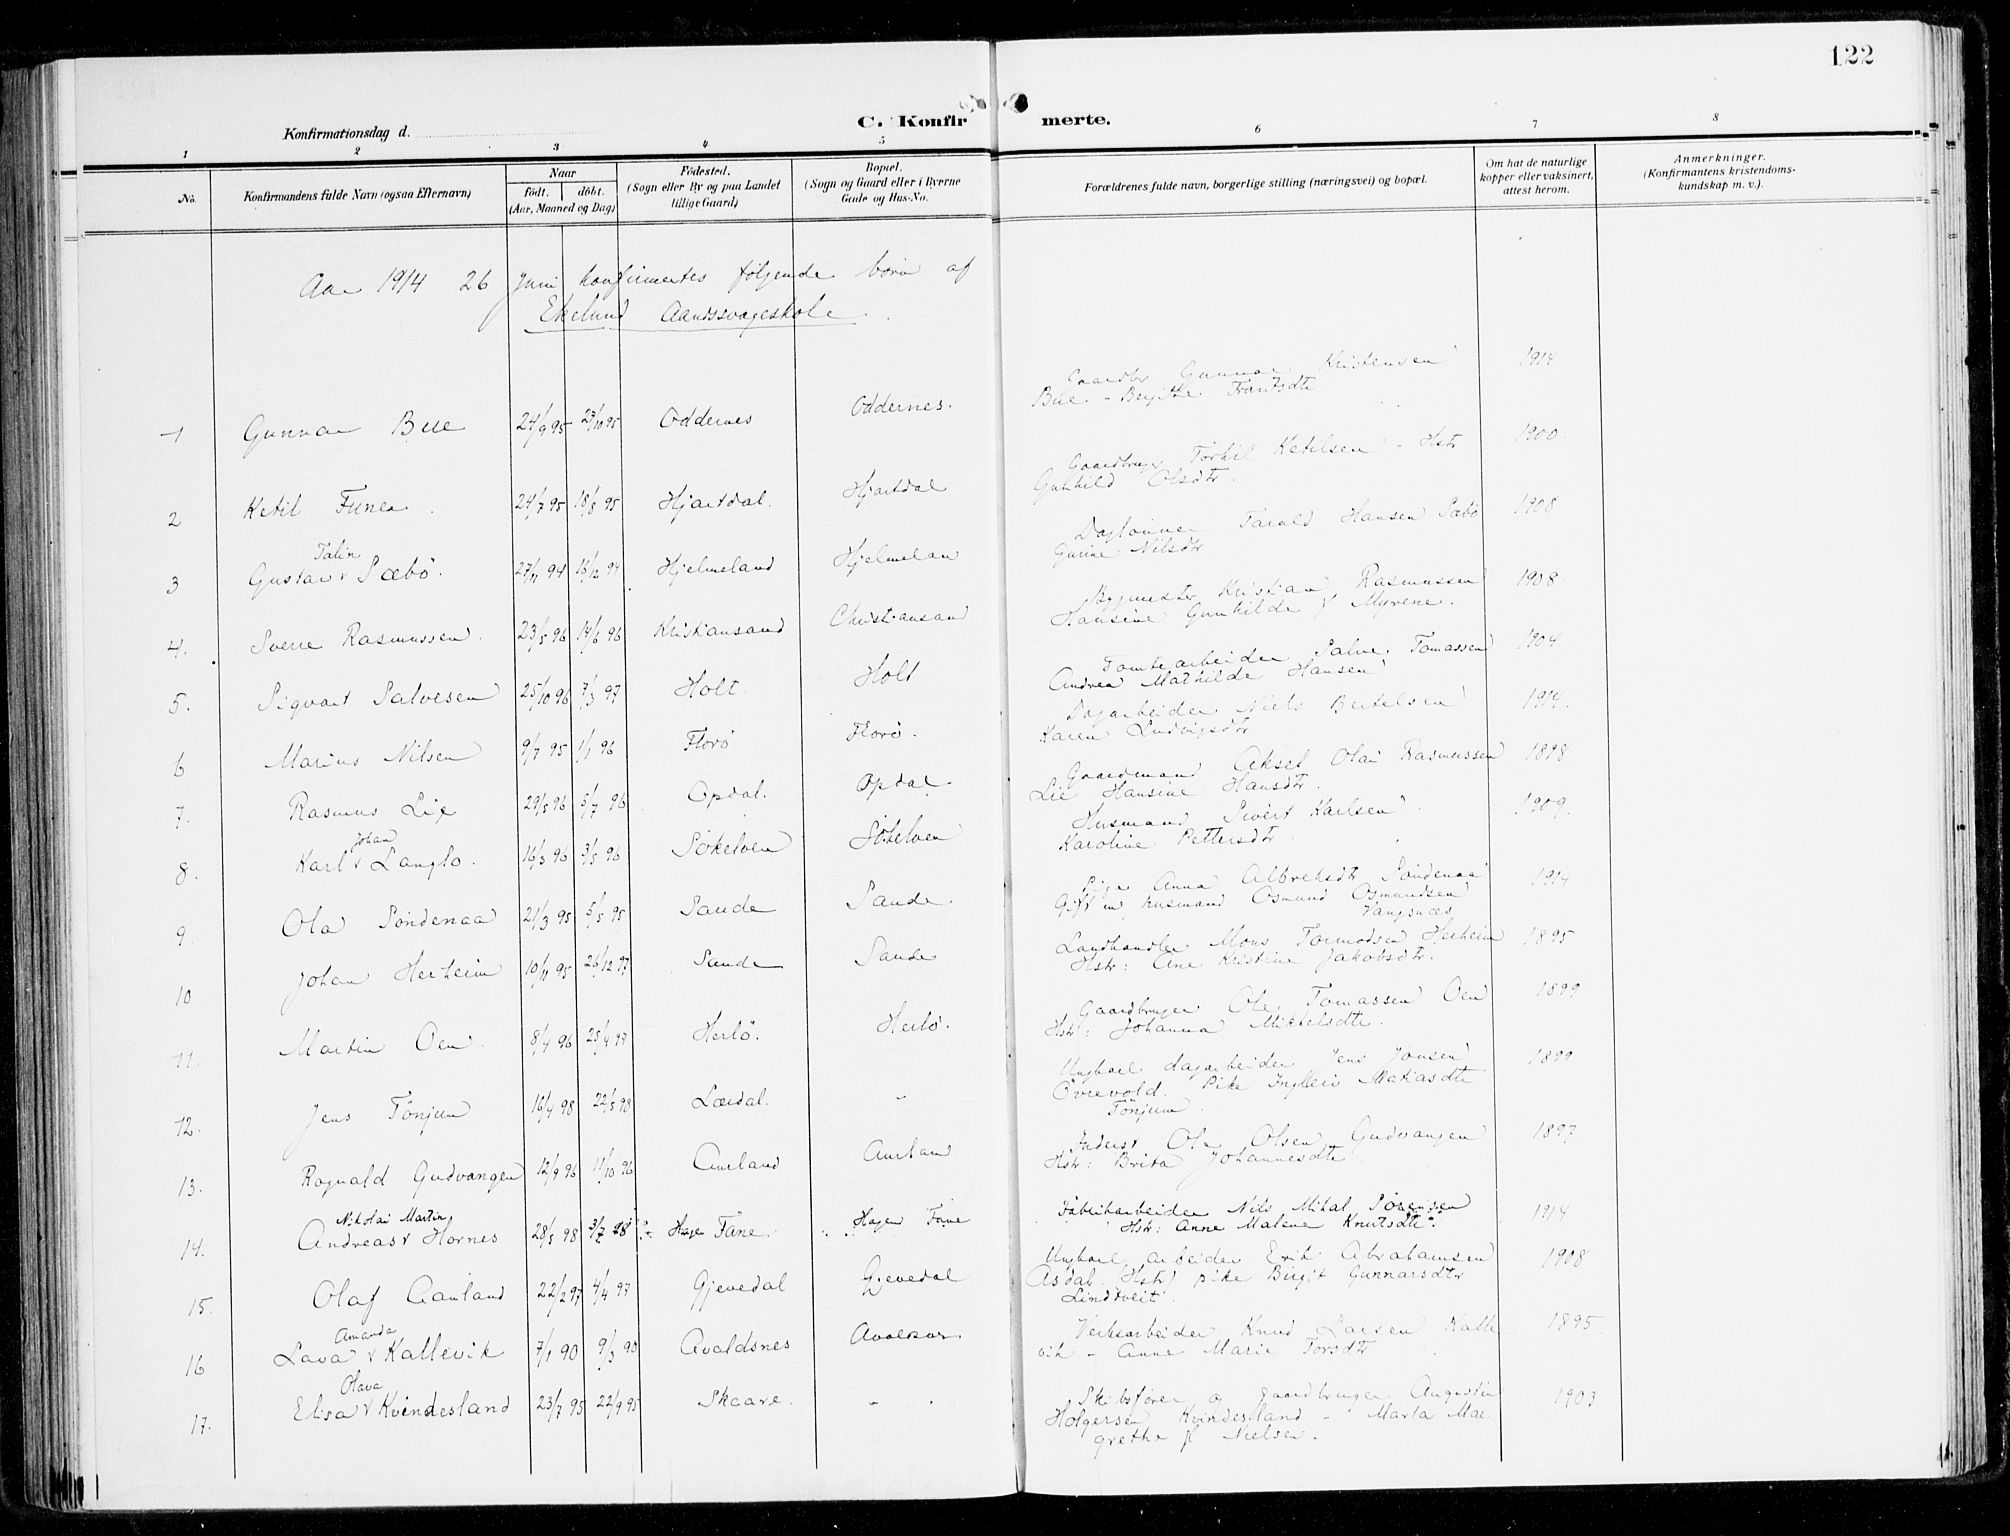 122
C. Konfirmerte.
Konfirmationsdag d.
1 2 3 4 5 6 7 8
No. Konfirmandens fulde Navn (ogsaa Efternavn) Naar födt. döbt. (Aar, Maaned og Dag) Födested. (Sogn eller By og paa Landet tillige Gaard) Bopæl. (Sogn og Gaard eller i Byerne Gade og Hus-No. Forældrenes fulde navn, borgerlige stilling (næringsvei) og bopæl. Om hat de naturlige kopper eller vaksinert, attest herom. Anmerkninger. (Konfirmantens kristendomskundskap m. v.).
Aar 1914 26 Juni konfirmertes følgende børn af
Ekelund Aandssvageskole
1 Gunnar Bue 24/9 95 27/10 95 Oddernes Oddernes. Gaardbr Gunnar Kristensen 1914
Bue - Bergitte Frantsdtr
2 Ketil Funer 24/7 95 18/8 95 Hjartdal. Hjartdal Gaardbruger Torkil Ketilsen - Hstr 1900.
Gunhild Olsdtr.
Talin
3 Gustav v Sæbö. 27/11 94 16/12 94 Hjelmeland Hjelmelan Daglönner Tarald Hansen Sæbö 1908
Gurine Nilsdtr
4. Sverre Rasmussen. 23/5 96 14/6 96 Kristiansand Christiansan Bygmester Kristian Rasmussen 1908
Hansine Gunhilde f Myrene.
5. Sigvart Salvesen 25/10 96 7/3 97 Holt Holt Tomtearbeider Salve Tomassen 1904
Andrea Mathilde Hansen
6 Marius Nilsen 9/7 95 1/1 96 Florö Florö. Dagarbeider Niels Bertelsen 1914.
Karen Ludvigsdtr
7. Rasmus Lie 29/5 96 5/7 96 Opdal. Opdal Gaardmand Aksel Olai Rasmussen 1898
Lie Hansine Hansdtr.
Johan
8. Karl v Langlo. 16/3 96 3/5 96 Sökelven Sökelven Husmand Sivert Karlsen 1909.
Karoline Pettersdtr
9 Ola Söndenaa 21/3 95 5/5 95 Sande Sande Pige Anna Albrektsdtr Söndenaa 1914
Gift m husmand Osmund Osmundsen
Vangsnæs
10 Johan Herheim 10/11 95 26/12 97 Sande Sande Landhandler Mons Tormodsen Herheim 1895
Hstr: Ane Kristine Jakobsdtr.
11. Martin Oen. 8/4 96 25/4 97 Herlö. Herlö. Gaardbruger Ole Tomassen Oen 1899
Hstr: Johanna Mikkelsdtr.
12. Jens Tönjum 16/4 98 22/5 98 Lærdal. - Ungkarl dagarbeider Jens Jonsen 1899
Övrevold. Pike Ingleiv Matiasdtr
Tönjum
13. Ragnald Gudvangen 12/9 96 11/10 96 Aurland Aurlan Inderst Ole Olsen Gudvangen 1897
Hstr: Brita Johannesdtr
Nikolai Martin
14. Andreas v Hornes 28/5 98 3/7 98 Hage Fane. Hagen Fane Fabrikarbeider Nils Mikal Sörensen 1914
Hstr: Anne Malene Knutsdtr.
15. Olaf Aanland 22/2 97 4/4 97 Gjevedal Gjevedal Ungkarl arbeider Erik Abrahamsen 1908
Asdal. (Hstr) pike Birgit Gunnarsdtr
Lindtveit.
Amanda
16 Lava v Kallevik 7/1 90 9/3 90 Avaldsnes Avaldsnes Verksarbeider Knud Larsen Kalle 1895
vik - Anne Marie Torsdtr.
Olava
17. Elisa v Kvindesland 23/7 95 22/9 95 Skaare. - Skibsförer og gaardbruger Augustin 1903
Holgersen Kvindesland - Marta Mar
grethe f Nielsen.